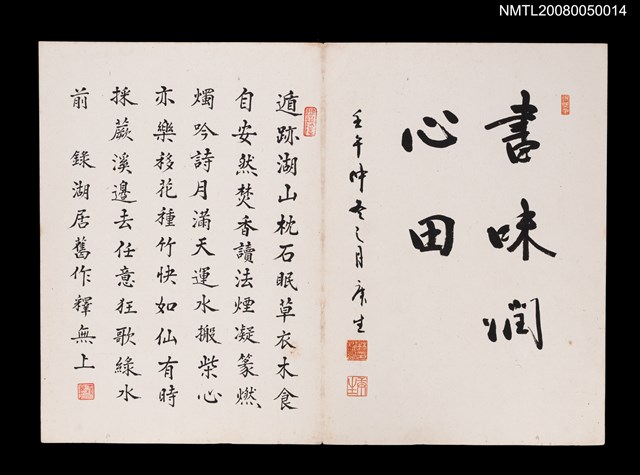 NMTL20080050014
書味潤
心田
壬午仲冬之月 康生
遁跡湖山枕石眠草衣木食
自安然焚香讀法煙凝篆燃
燭吟詩月滿天運水搬柴心
亦樂移花種竹快如仙有時
採蕨溪邊去任意狂歌綠水
前 錄湖居舊作釋無上